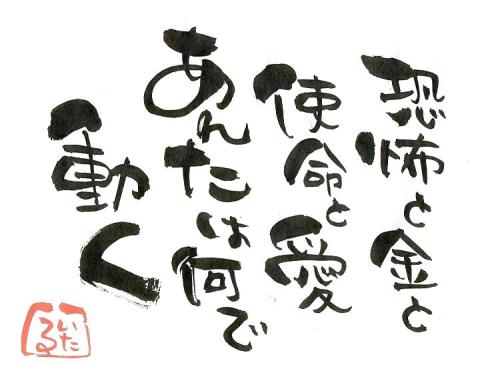 恐怖と金と
使命と愛
あんたは何で
動く
いたる